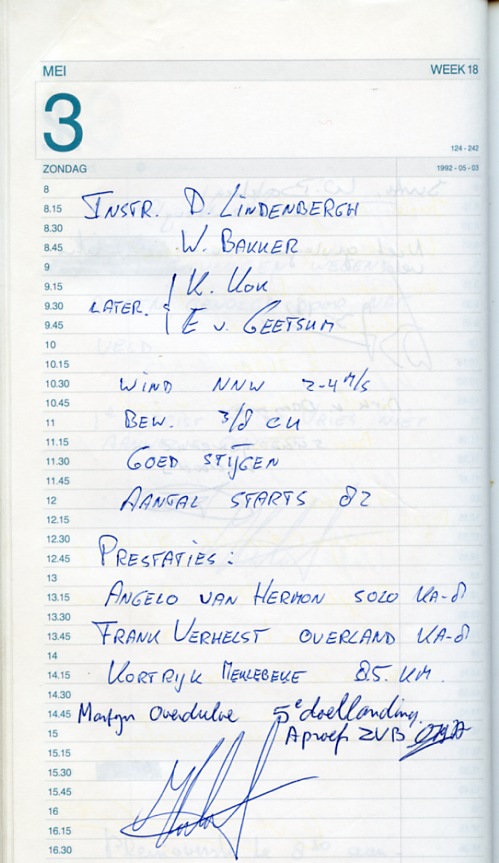 MEI WEEK 18
3
124 - 242
ZONDAG 1992 - 05 - 03
8
8.15 INSTR. D. LINDENBERGH
8.30
8.45 W. BAKKER
9
9.15 K. KOK
9.30 LATER.
9.45 E v. GEETSUM
10
10.15
10.30 WIND NNW 2-4 M/S
10.45
11 BEW. 3/8 CU
11.15
11.30 GOED STIJGEN
11.45
12 AANTAL STARTS 82
12.15
12.30
12.45 PRESTATIES:
13
13.15 ANGELO VAN HERMON SOLO KA-8
13.30
13.45 FRANK VERHELST OVERLAND KA-8
14
14.15 KORTRIJK MEULEBEKE 85. KM.
14.30
14.45 Martyn Overdulve 5e doellanding
15 A proef ZVB
15.15
15.30
15.45
16
16.15
16.30